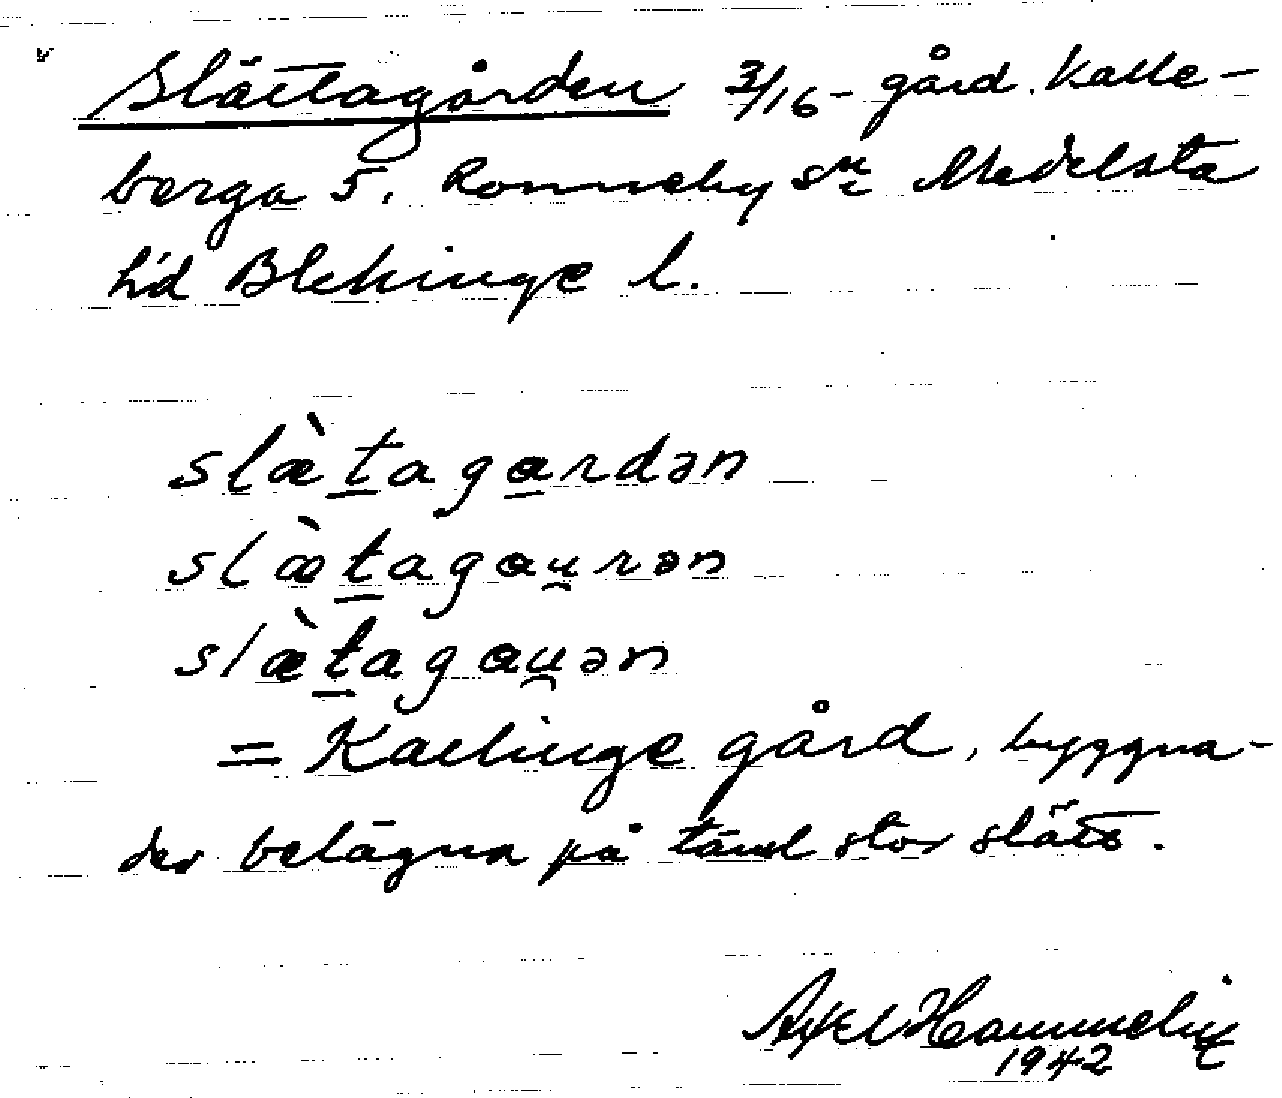 Slättagården 3/16-gård. Kalle-
berga 5. Ronneby sn Medelsta
hd Blekinge l.
slæ̀tagɑrdən
slæ̀tagɑu̯rən
slæ̀tagɑu̯ən
= Kallinge gård, byggna-
der belägna på täml stor slätt.
Axel Hammelin
1942